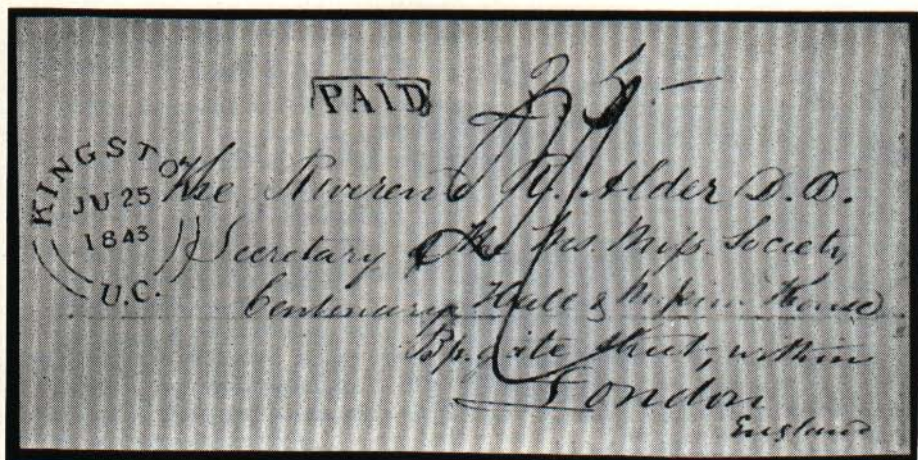 PAID
KINGSTON
JU 25
1843
U.C.
The Reverend R. Alder D.D.
Secretary of the Wes. Miss. Society
Centenary Hall & Mission House
Bp. gate Street, within
London
England